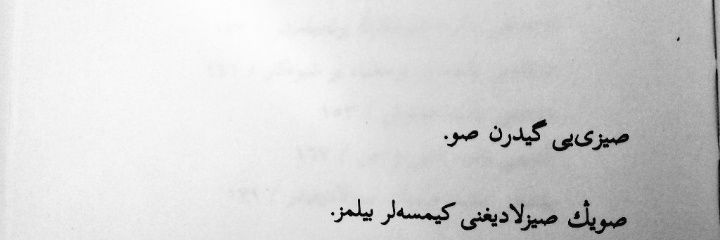 صیزی‌یی گیدرن صو.
صویڭ صیزلادیغنی کیمسه‌لر بیلمز.